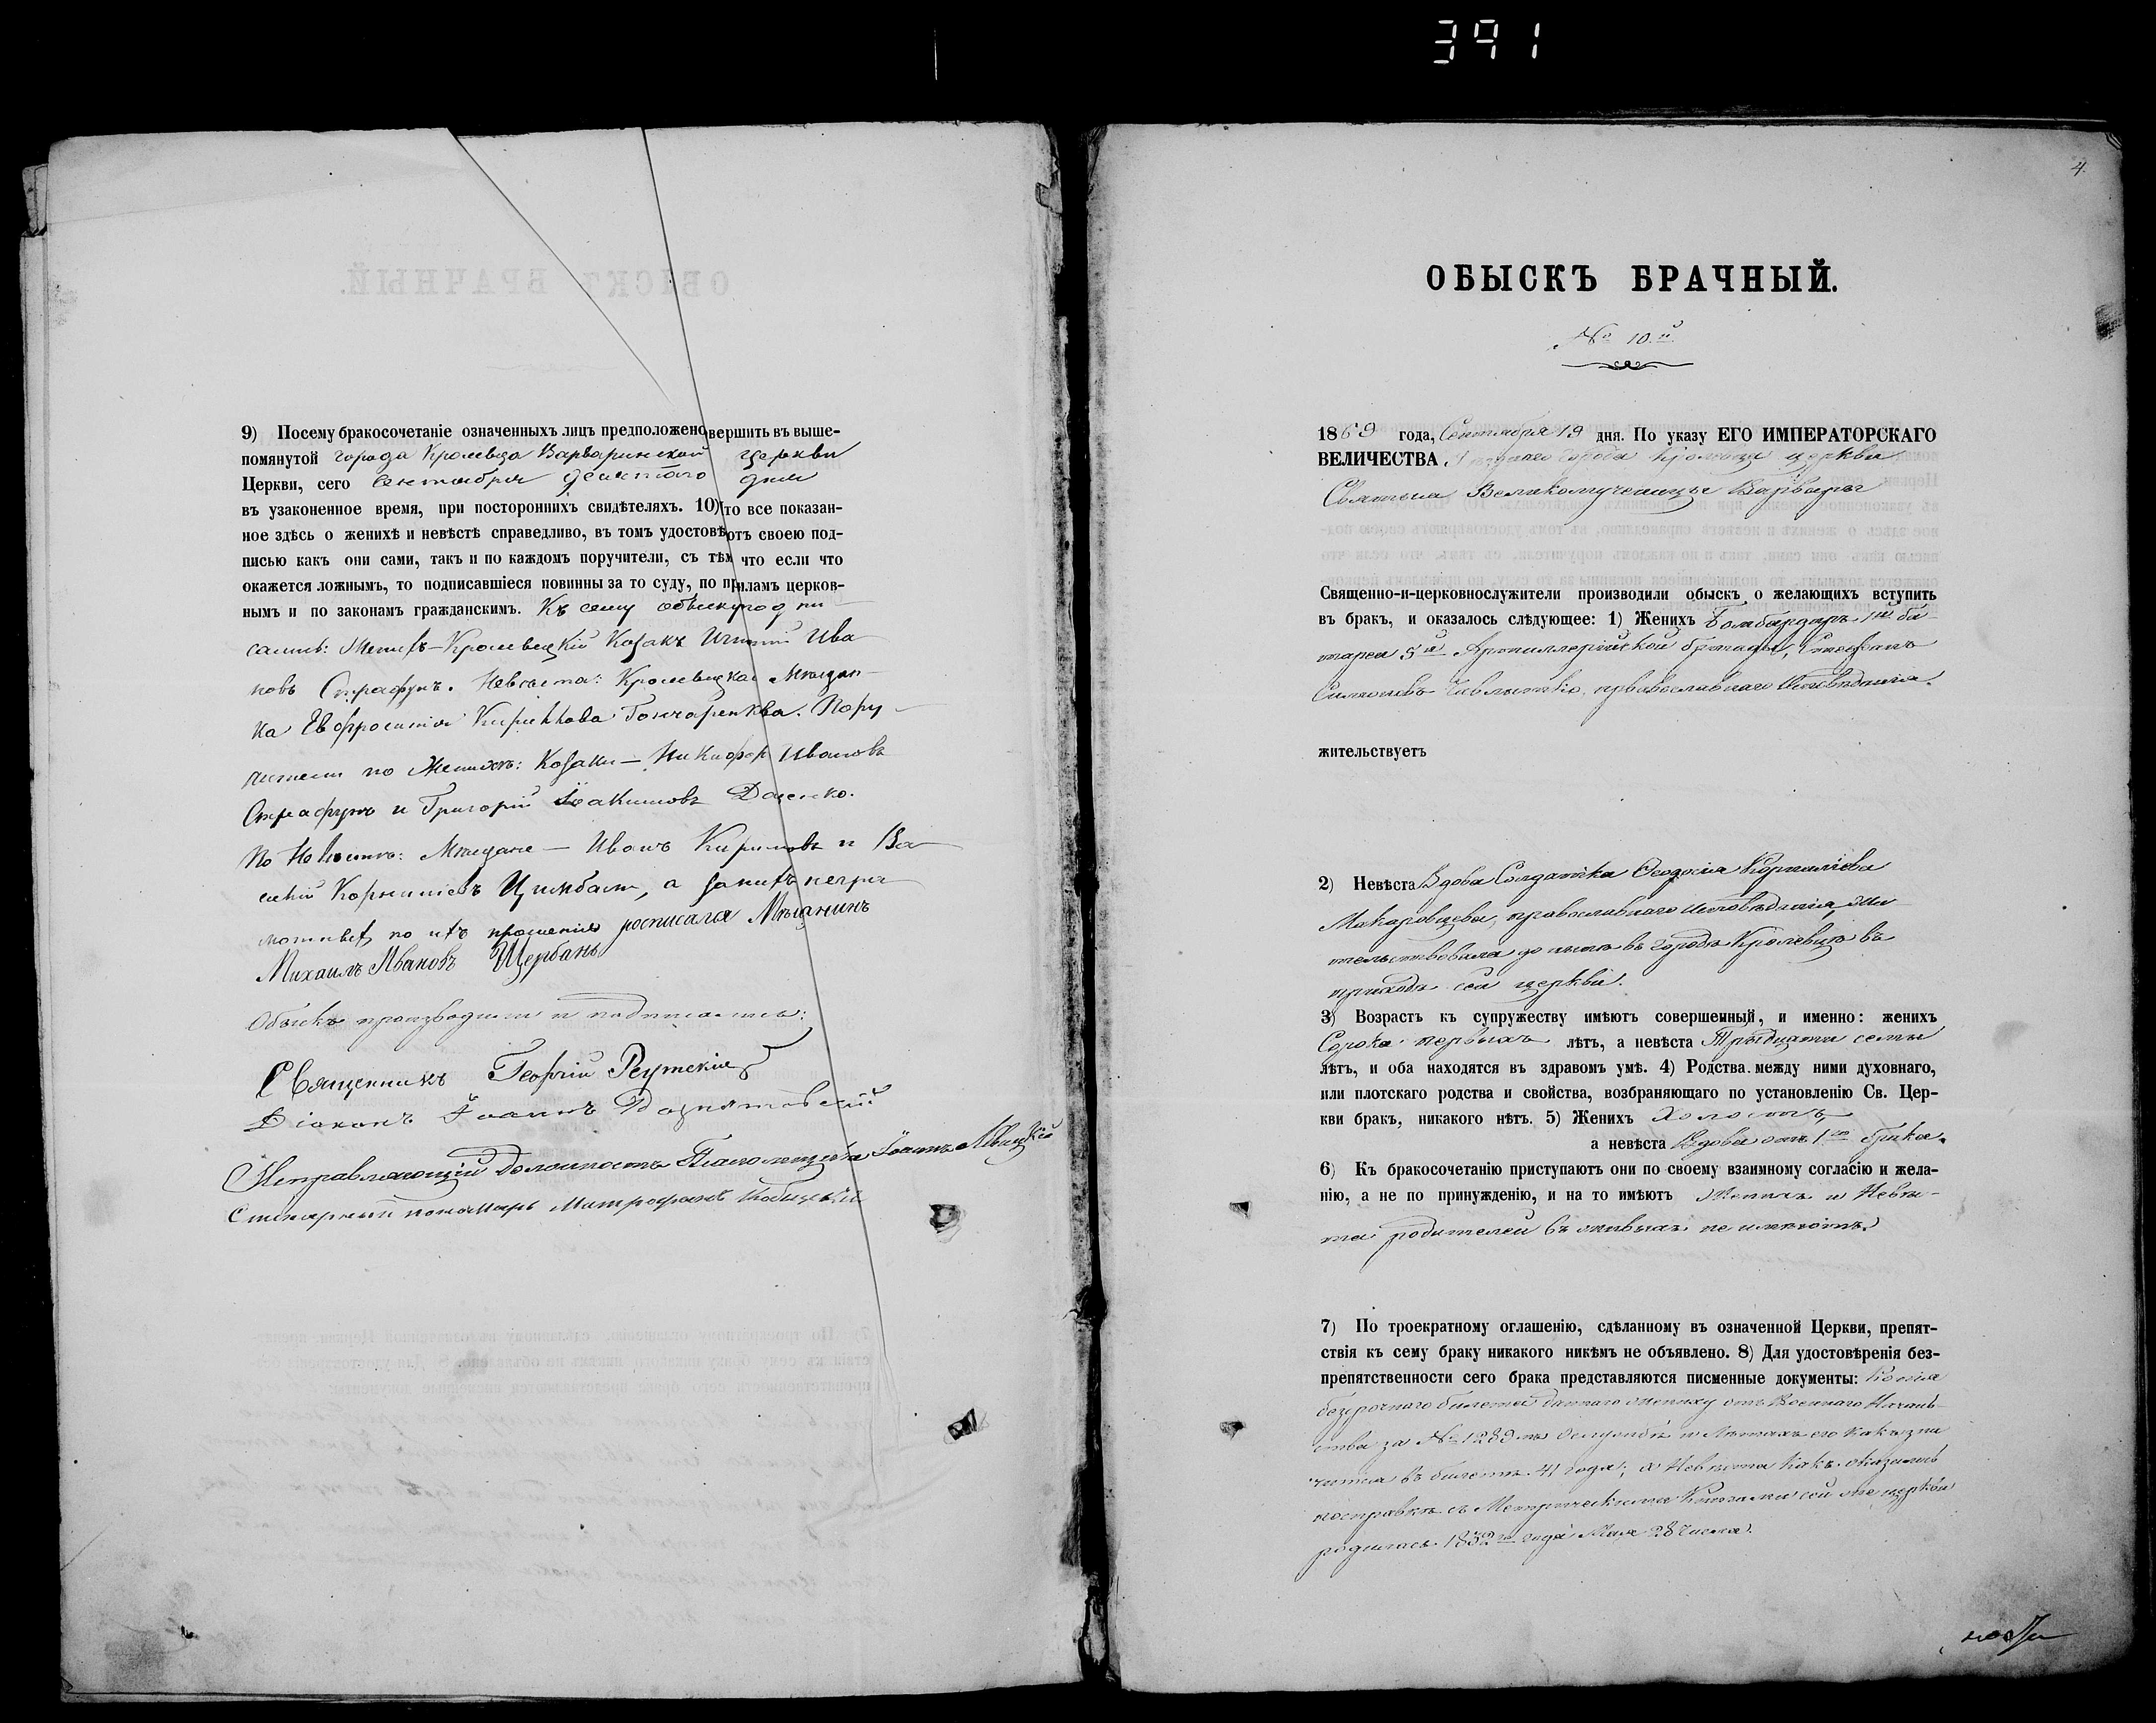 391
9) Посему бракосочетаніе означенныхъ лицъ предположено вершить въ выше-
помянутой города Кролевца Варваринской церкви
Церкви, сего Сентября девятого дня
въ узаконенное время, при постороннихъ свидѣтеляхъ. 10) то все показан-
ное здѣсь о женихѣ и невѣстѣ справедливо, въ томъ удостовѣ отъ своею под-
писью какъ они сами, такъ и по каждомъ поручители, съ тѣм что если что
окажется ложнымъ, то подписавшіеся повинны за то суду, по пр иламъ церков-
нымъ и по законамъ гражданскимъ. Къ сему обыску подпи-
сались: Женихъ – Кролевецкій Козакъ Ива-
новъ Страфунъ. Невѣста: Кролевецкая Мѣщан-
ка Евфросинія Кирилова Гончаренкова. Пору-
чители по Женихѣ: Козаки – Никифоръ Ивановъ
Страфунъ и Григорій Іоакимовъ Даценко.
По Невѣстѣ: Мѣщане – Иванъ Кириловъ и Ва-
силій Корниліевъ Цимбалъ, а за нихъ негра-
мотныхъ по ихъ прошенію росписался Мѣщанинъ
Михаилъ Ивановъ Щербань
Обыскъ производили и подписались:
Священникъ Георгій Реутскій
Діаконъ Іоаннъ
Исправляющій Должность Псаломщика Іоаннъ
пономарь Митрофанъ
4.
ОБЫСКЪ БРАЧНЫЙ.
№ 10.й
1869 года, Сентября 19 дня. По указу ЕГО ИМПЕРАТОРСКАГО
ВЕЛИЧЕСТВА, города Кролевца церкви
Святыя Великомученицы Варвары
Священно-и-церковнослужители производили обыскъ о желающихъ вступить
въ бракъ, и оказалось слѣдующее: 1) Женихъ Бомбардиръ 1й ба-
тареи 5й Артиллерійской бригады, Стефанъ
православнаго Исповѣданія.
жительствуетъ
2) Невѣста Вдова Солдатка Ѳеодосія Корниліева
Макаровцева, православнаго Исповѣданія, жи-
тельствовала до нынѣ въ городѣ Кролевцѣ въ
приходѣ сей церкви.
3) Возрастъ къ супружеству имѣютъ совершенный, и именно: женихъ
Сорока первыхъ лѣтъ, а невѣста Тридцати семи
лѣтъ, и оба находятся въ здравомъ умѣ. 4) Родства между ними духовнаго,
или плотскаго родства и свойства, возбраняющаго по установленію Св. Цер-
кви бракъ, никакого нѣтъ. 5) Женихъ Холостъ
а невѣста Вдова отъ 1го брака.
6) Къ бракосочетанію приступаютъ они по своему взаимному согласію и жела-
нію, а не по принужденію, и на то имѣютъ Женихъ и Невѣс-
та родителей въ живыхъ не имѣютъ.
7) По троекратному оглашенію, сдѣланному въ означенной Церкви, препят-
ствія къ сему браку никакого никѣмъ не объявлено. 8) Для удостовѣренія без-
препятственности сего брака представляются писменные документы: Копія
безсрочнаго билета даннаго жениху отъ Военнаго Началь-
ства за № 1289 о и Лѣтахъ его какъ зна-
чится въ билетѣ 41 года; а Невѣста какъ оказалось
по справкѣ съ Метрическими Книгами сей же церкви
родилась 1832го года Мая 28 числа.